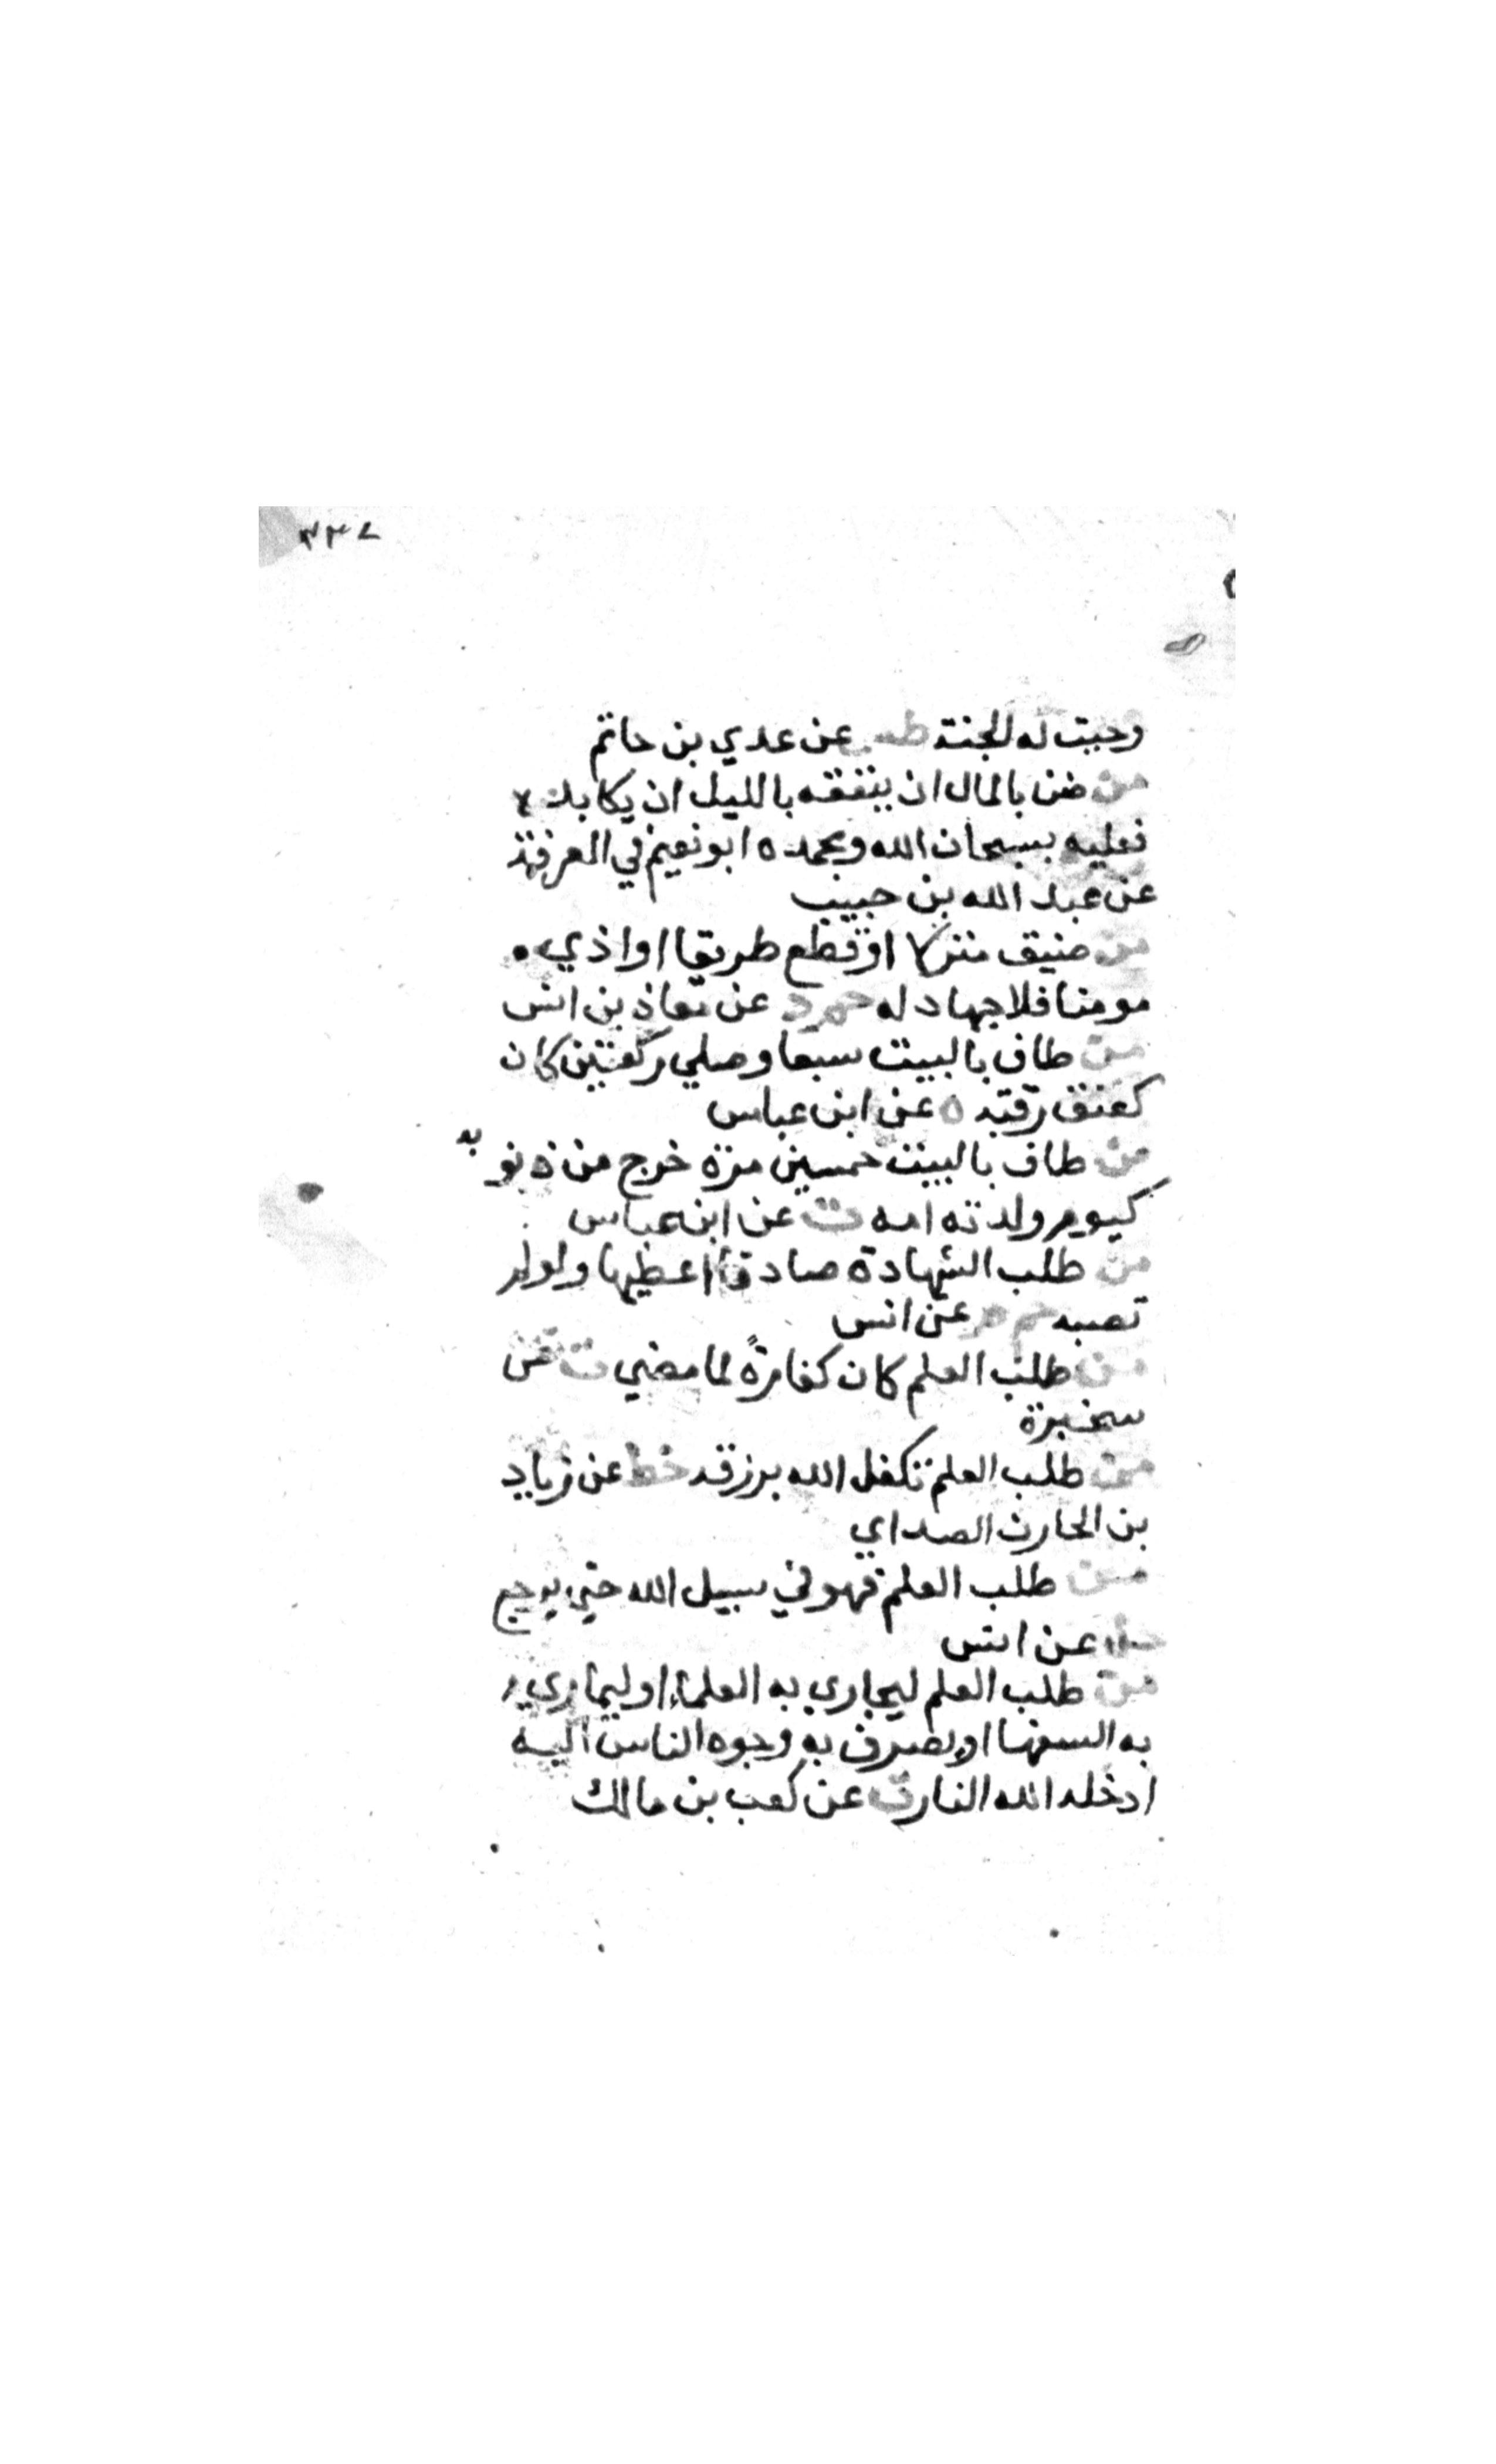 ٣٣٧
وجبت له الجنة طس عن عدي بن حاتم
من ضن بالمال ان ينفقه بالليل ان يكابده
فعليه بسبحان الله وبحمده ابو نعيم في المعرفة
عن عبد الله بن حبيب
من ضيق منزلا او قطع طريقا او اذي
مومنا فلا جهاد له حم د عن معاذ بن انس
من طاف بالبيت سبعا وصلي ركعتين كان
كعتق رقبة ه عن ابن عباس
من طاف بالبيت خمسين مرة خرج من ذنوبه
كيوم ولدته امه ت عن ابن عباس
من طلب الشهادة صادقا اعطيها ولو لم
تصبه حم م عن انس
من طلب العلم كان كفارةً لما مضي ت عن
سخبرة
من طلب العلم تكفل الله برزقه خط عن زياد
بن الحارث الصداي
من طلب العلم فهو في سبيل الله حتي يرجع
حل عن انس
من طلب العلم ليجاري به العلماء او ليماري
به السفها او يصرف به وجوه الناس اليه
ادخله الله النار ت عن كعب بن مالك